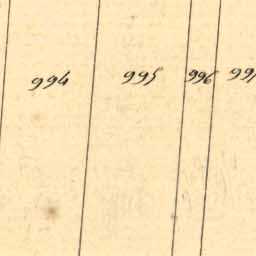 994 995 996 99